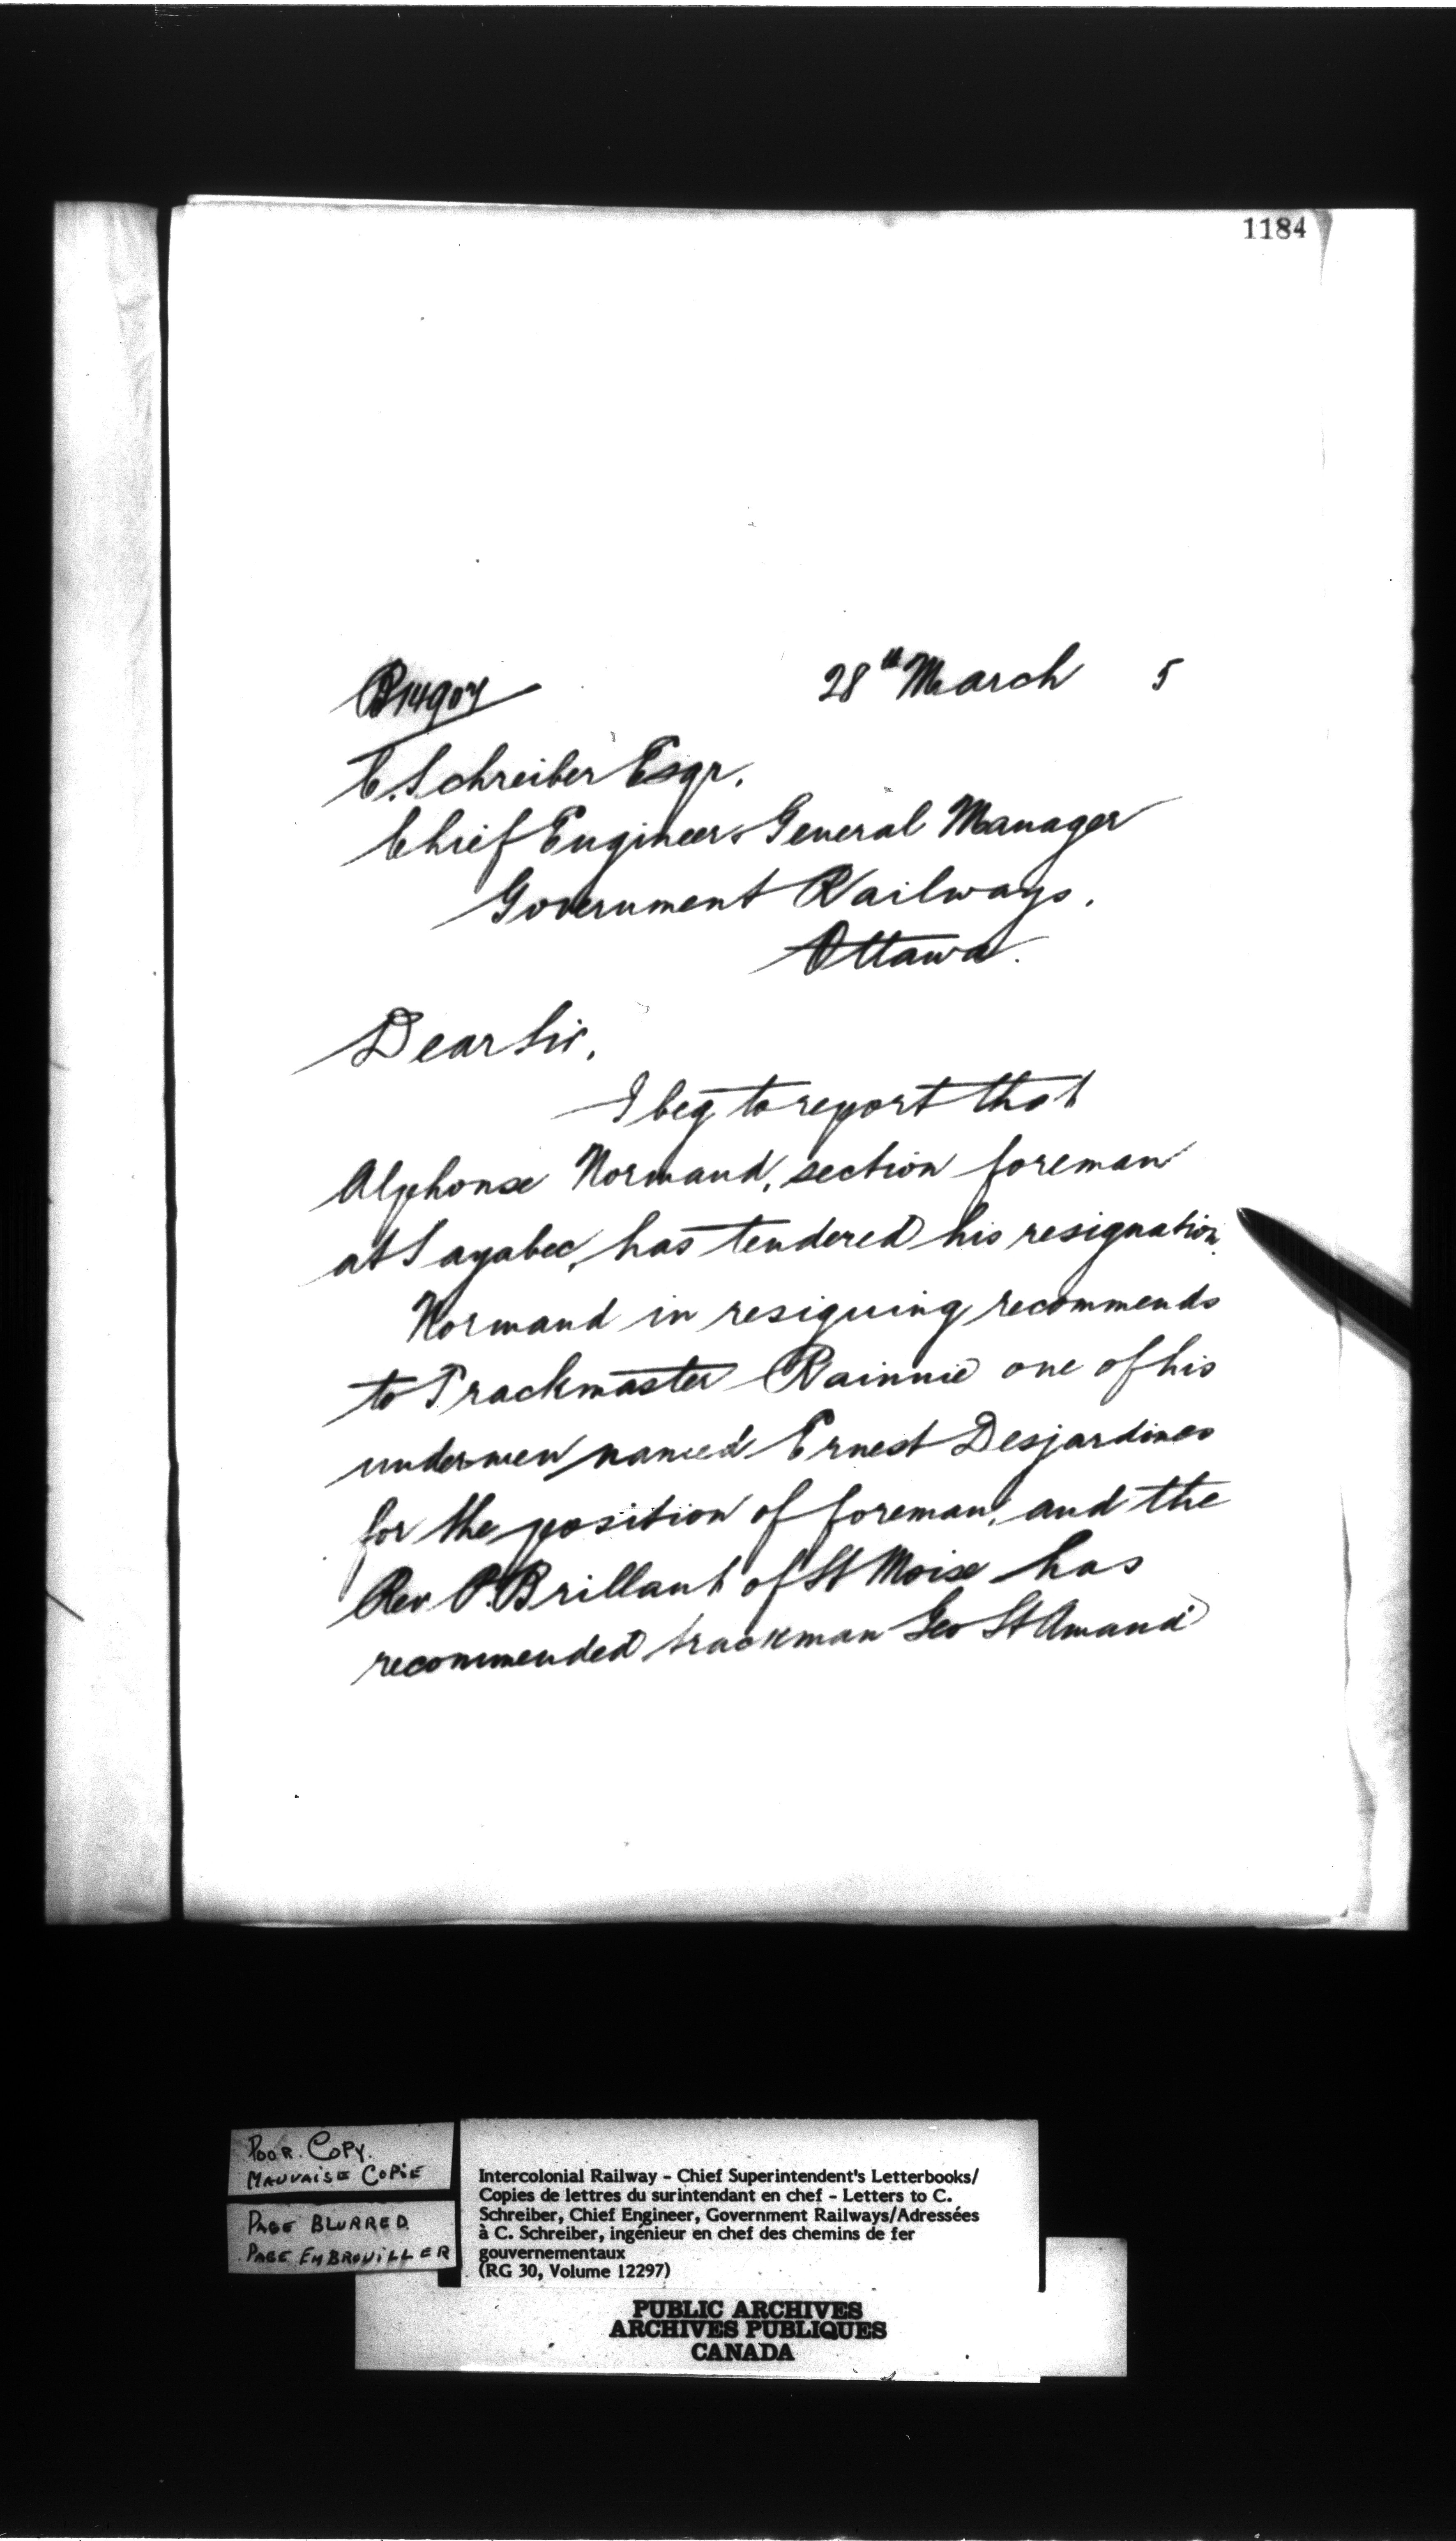 1184
B14907
28th March 5
C. Schreiber Esqr.
Chief Engineer & General Manager
Government Railways.
Ottawa.
Dear Sir,
I beg to report that
Alphonse Normand, section foreman
at Sayabec, has tendered his resignation.
Normand in resigning recommends
to Trackmaster Rainnie one of his
undermen named Ernest Desjardines
for the position of foreman, and the
Rev P. Brillant of St Moise has
recommended trackman Geo St Amand
POOR. COPY.
MAUVAISE COPIE
PAGE BLURRED
PAGE EMBROUILLER
Intercolonial Railway - Chief Superintendent's Letterbooks/
Copies de lettres du surintendant en chef - Letters to C.
Schreiber, Chief Engineer, Government Railways/Adressées
à C. Schreiber, ingénieur en chef des chemins de fer
gouvernementaux
(RG 30, Volume 12297)
PUBLIC ARCHIVES
ARCHIVES PUBLIQUES
CANADA